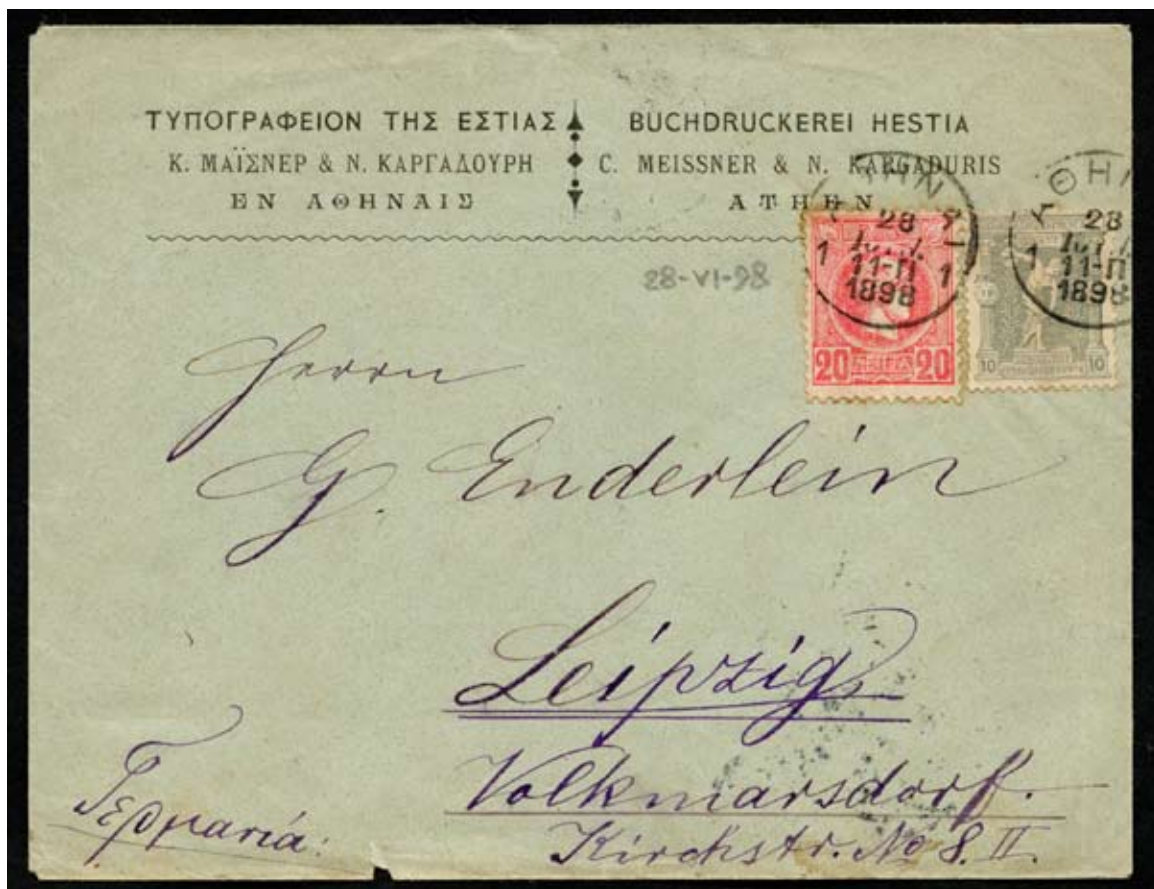 ΤΥΠΟΓΡΑΦΕΙΟΝ ΤΗΣ ΕΣΤΙΑΣ
Κ. ΜΑΪΣΝΕΡ & Ν. ΚΑΡΓΑΔΟΥΡΗ
ΕΝ ΑΘΗΝΑΙΣ
BUCHDRUCKEREI HESTIA
C. MEISSNER & N. KARGADURIS
ATHEN
28
1 11-Π 1
1898
ΑΘΗ
28
1 11-Π
1898
20 20
10 10
28-VI-98
Herrn
G. Enderlein
Leipzig
Volkmarsdorf.
Kirchstr. No 8. II.
Γερμανία.